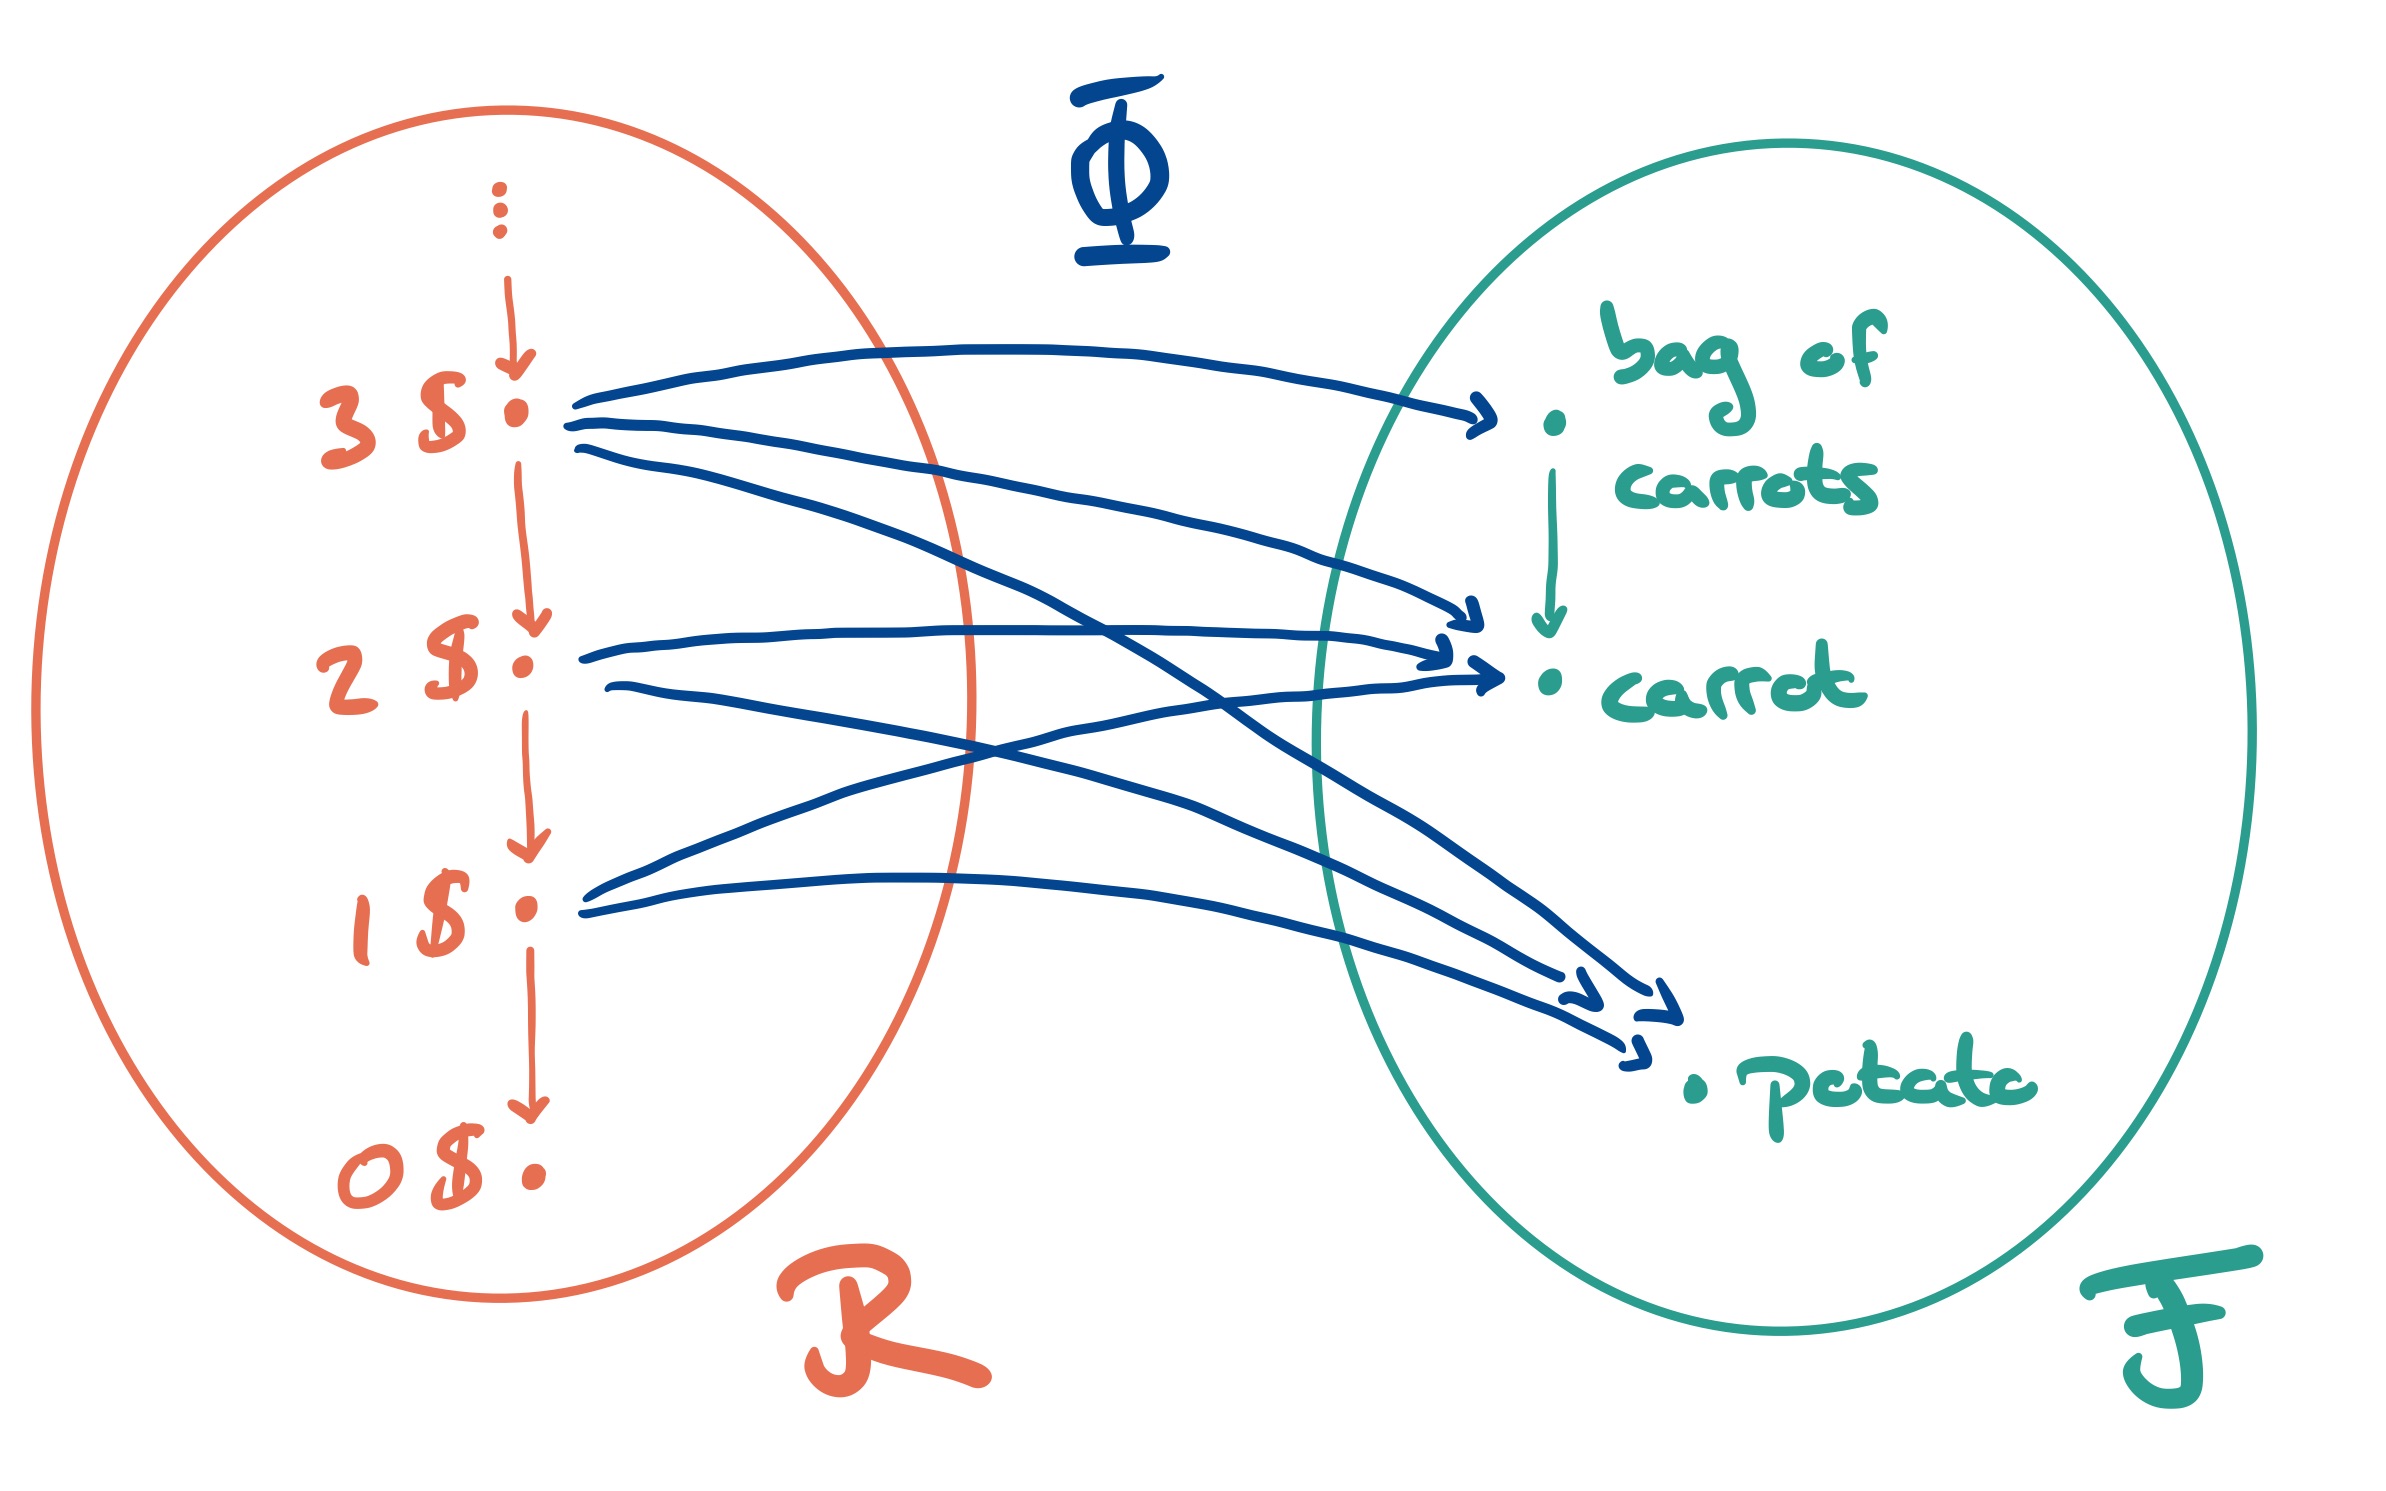 Φ
3 $
2 $
1 $
0 $
bag of
carrots
carrot
potato
R
F